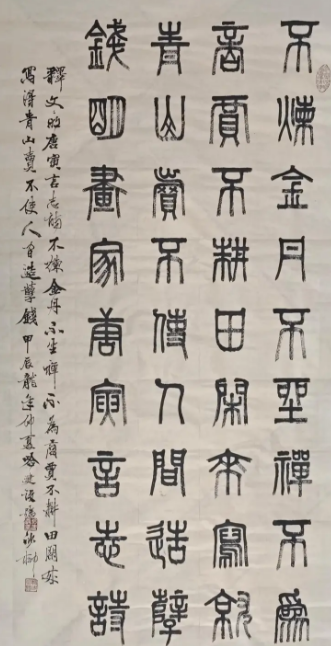 不煉金丹不坐禪不為
商賈不耕田閑來寫就
青山賣不使人間造孽
錢明畫家唐寅言志詩
釋文唐寅言志詩不煉金丹不坐禪不為商賈不耕田閑來
寫得青山賣不使人間造孽錢甲辰龍年仲夏